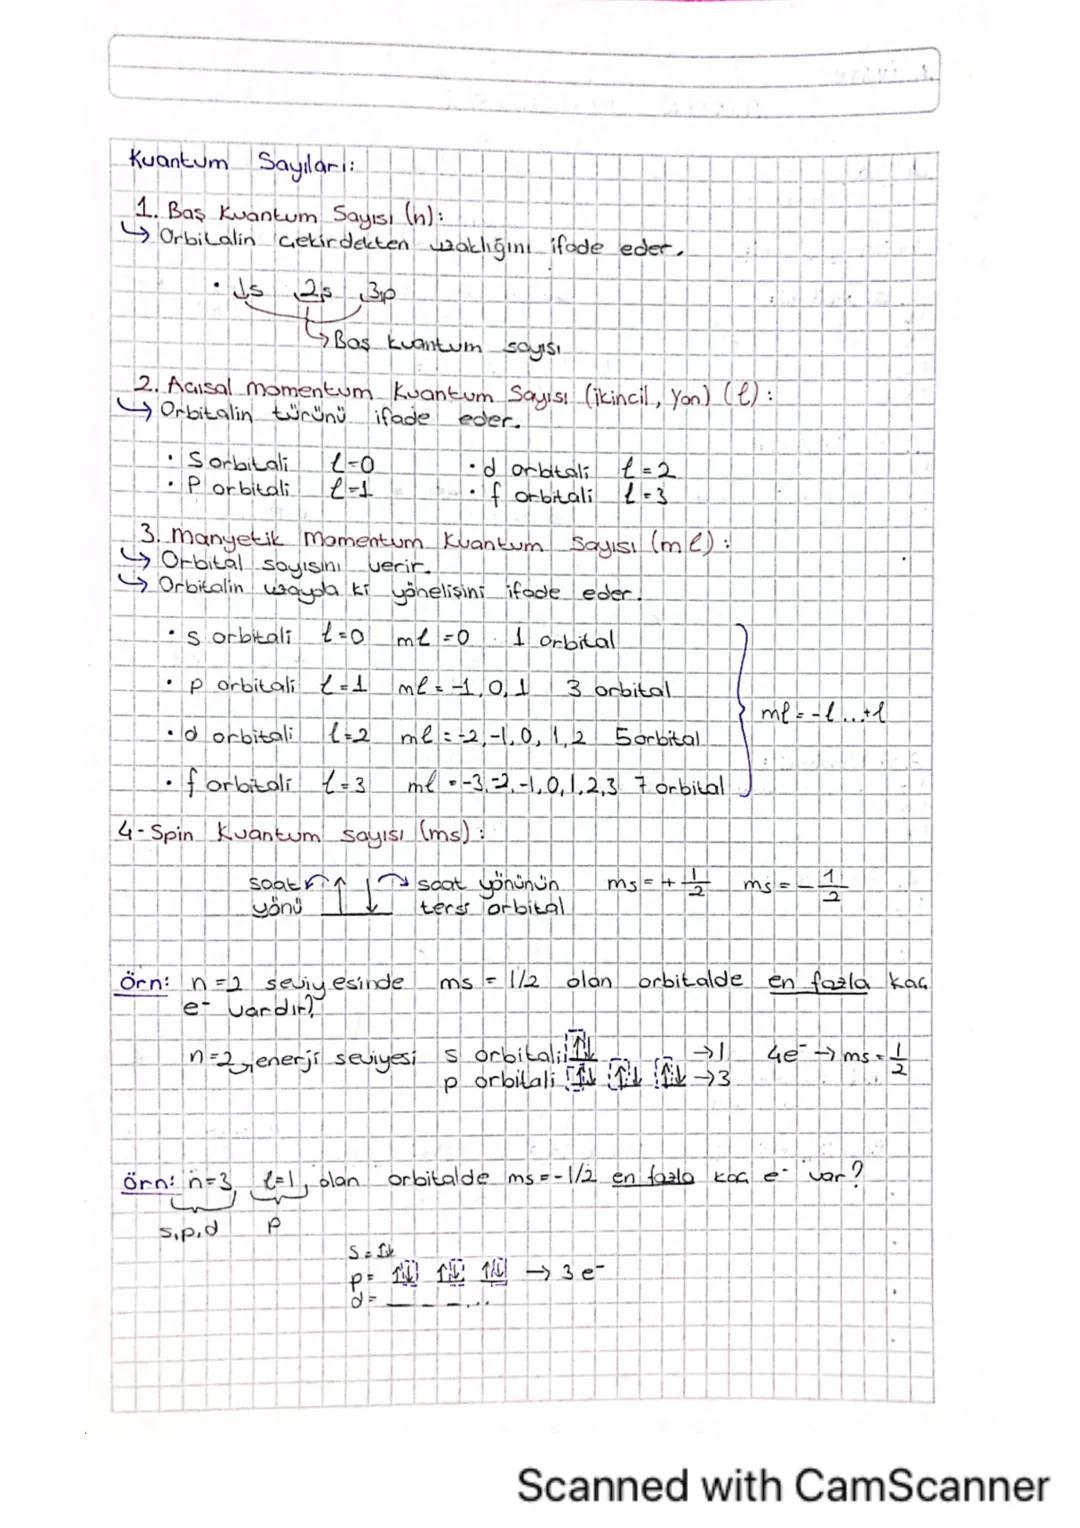 Kuantum Sayıları:
1. Baş Kuantum Sayısı (n):
↳ Orbitalin Çekirdekten uzaklığını ifade eder.
• 1s 2s 3p
↳ Baş kuantum sayısı
2. Açısal momentum Kuantum Sayısı (ikincil, Yan) (ℓ):
↳ Orbitalin türünü ifade eder.
• S orbitali ℓ=0 • d orbitali ℓ=2
• P orbitali ℓ=1 • f orbitali ℓ=3
3. Manyetik Momentum Kuantum Sayısı (mℓ):
↳ Orbital sayısını verir.
↳ Orbitalin uzayda ki yönelişini ifade eder.
• s orbitali ℓ=0 mℓ=0 1 orbital
• p orbitali ℓ=1 mℓ=-1,0,1 3 orbital
mℓ=-ℓ...+ℓ
• d orbitali ℓ=2 mℓ=-2,-1,0,1,2 5 orbital
• f orbitali ℓ=3 mℓ=-3,-2,-1,0,1,2,3 7 orbital
4- Spin Kuantum sayısı (ms):
saat yönü ↑ ↓ saat yönünün tersi orbital ms=+1/2 ms=-1/2
Örn: n=2 seviyesinde ms = 1/2 olan orbitalde en fazla kaç
e- vardır?
n=2 enerji seviyesi s orbitali ↑↓ →1 4e- → ms=1/2
p orbitali ↑↓ ↑↓ ↑↓ →3
Örn: n=3, ℓ=1, olan orbitalde ms=-1/2 en fazla kaç e- var?
s,p,d p
s= ↑↓
p= ↑↓ ↑↓ ↑↓ → 3 e-
d= _ _ _ ...
Scanned with CamScanner